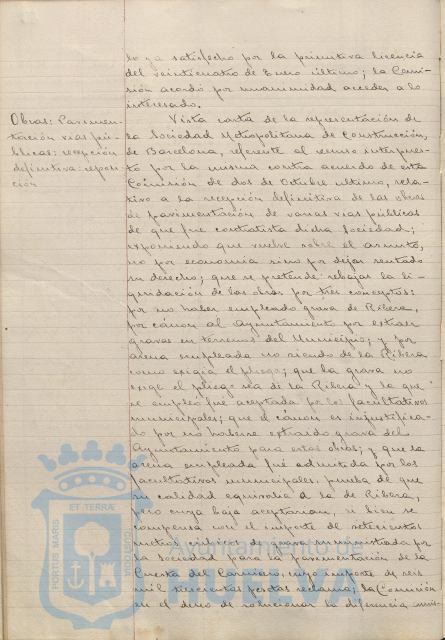 lo ya satisfecho por la primitiva licencia
del veinticuatro de Enero último; la Comi-
sión acordó por unanimidad acceder a lo
interesado.
Obras: Pavimen-
tación vías pú-
blicas: recepción
definitiva: reposi-
ción
Vista carta de la representación de
la Sociedad Metropolitana de Construcción,
de Barcelona, referente al recurso interpues-
to por la misma contra acuerdo de esta
Comisión de dos de Octubre último, rela-
tivo a la recepción definitiva de las obras
de pavimentación de varias vías públicas
de que fue contratista dicha Sociedad;
exponiendo que vuelve sobre el asunto,
no por economía sino por dejar sentado
su derecho; que se pretende rebajar la li-
quidación de las obras por tres conceptos:
por no haber empleado grava de Ribera,
por cánon al Ayuntamiento por extraer
gravas en terrenos del Municipio; y por
arena empleada no siendo de la Ribera
como exigía el pliego; que la grava no
exige el pliego sea de la Ribera y la que
se empleó fue aceptada por los facultativos
municipales; que el cánon es injustifica-
do por no haberse extraido grava del
Ayuntamiento para estas obras; y que la
arena empleada fué admitida por los
facultativos municipales, prueba de que
su calidad equivalía a la de Ribera,
pero cuya baja aceptarían, si bien se
compensa con el importe de setecientos
metros cúbicos de grava suministrada por
la Sociedad para la pavimentación de la
Cuesta del Carnicero, cuyo importe de seis
mil seiscientas pesetas reclama; la Comisión
en el deseo de solucionar la diferencia
PORTUS MARIS
ET TERRÆ
CUSTODIA
Ayuntamiento de
HUELVA